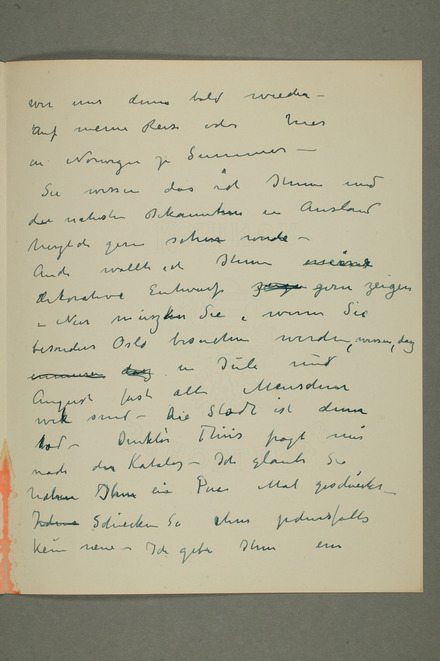 wir uns denn bald wieder –
Auf meine Reise oder hier
in Norwegen je Summer –
Sie wissen das ich Ihnen und
der nähste Bekannten in Ausland
herzlich gern sehen wurde –
Auch wollte ich Ihnen meine
dekorative Entwurfe gern zeigen
– Nur müssen Sie, wenn Sie
besonders Oslo besuchen werden, wissen, das
in Jule und
August fast alle Menschen
wek sind – Die Stadt ist denn
tod – Direktör Thiis fragt mir
nach den Katalog – Ich glaube Sie
haben Ihm ein Paar Mal geschickt –
Schicken Sie ihm jedenfalls
kein neue – Ich gebe Ihm ein